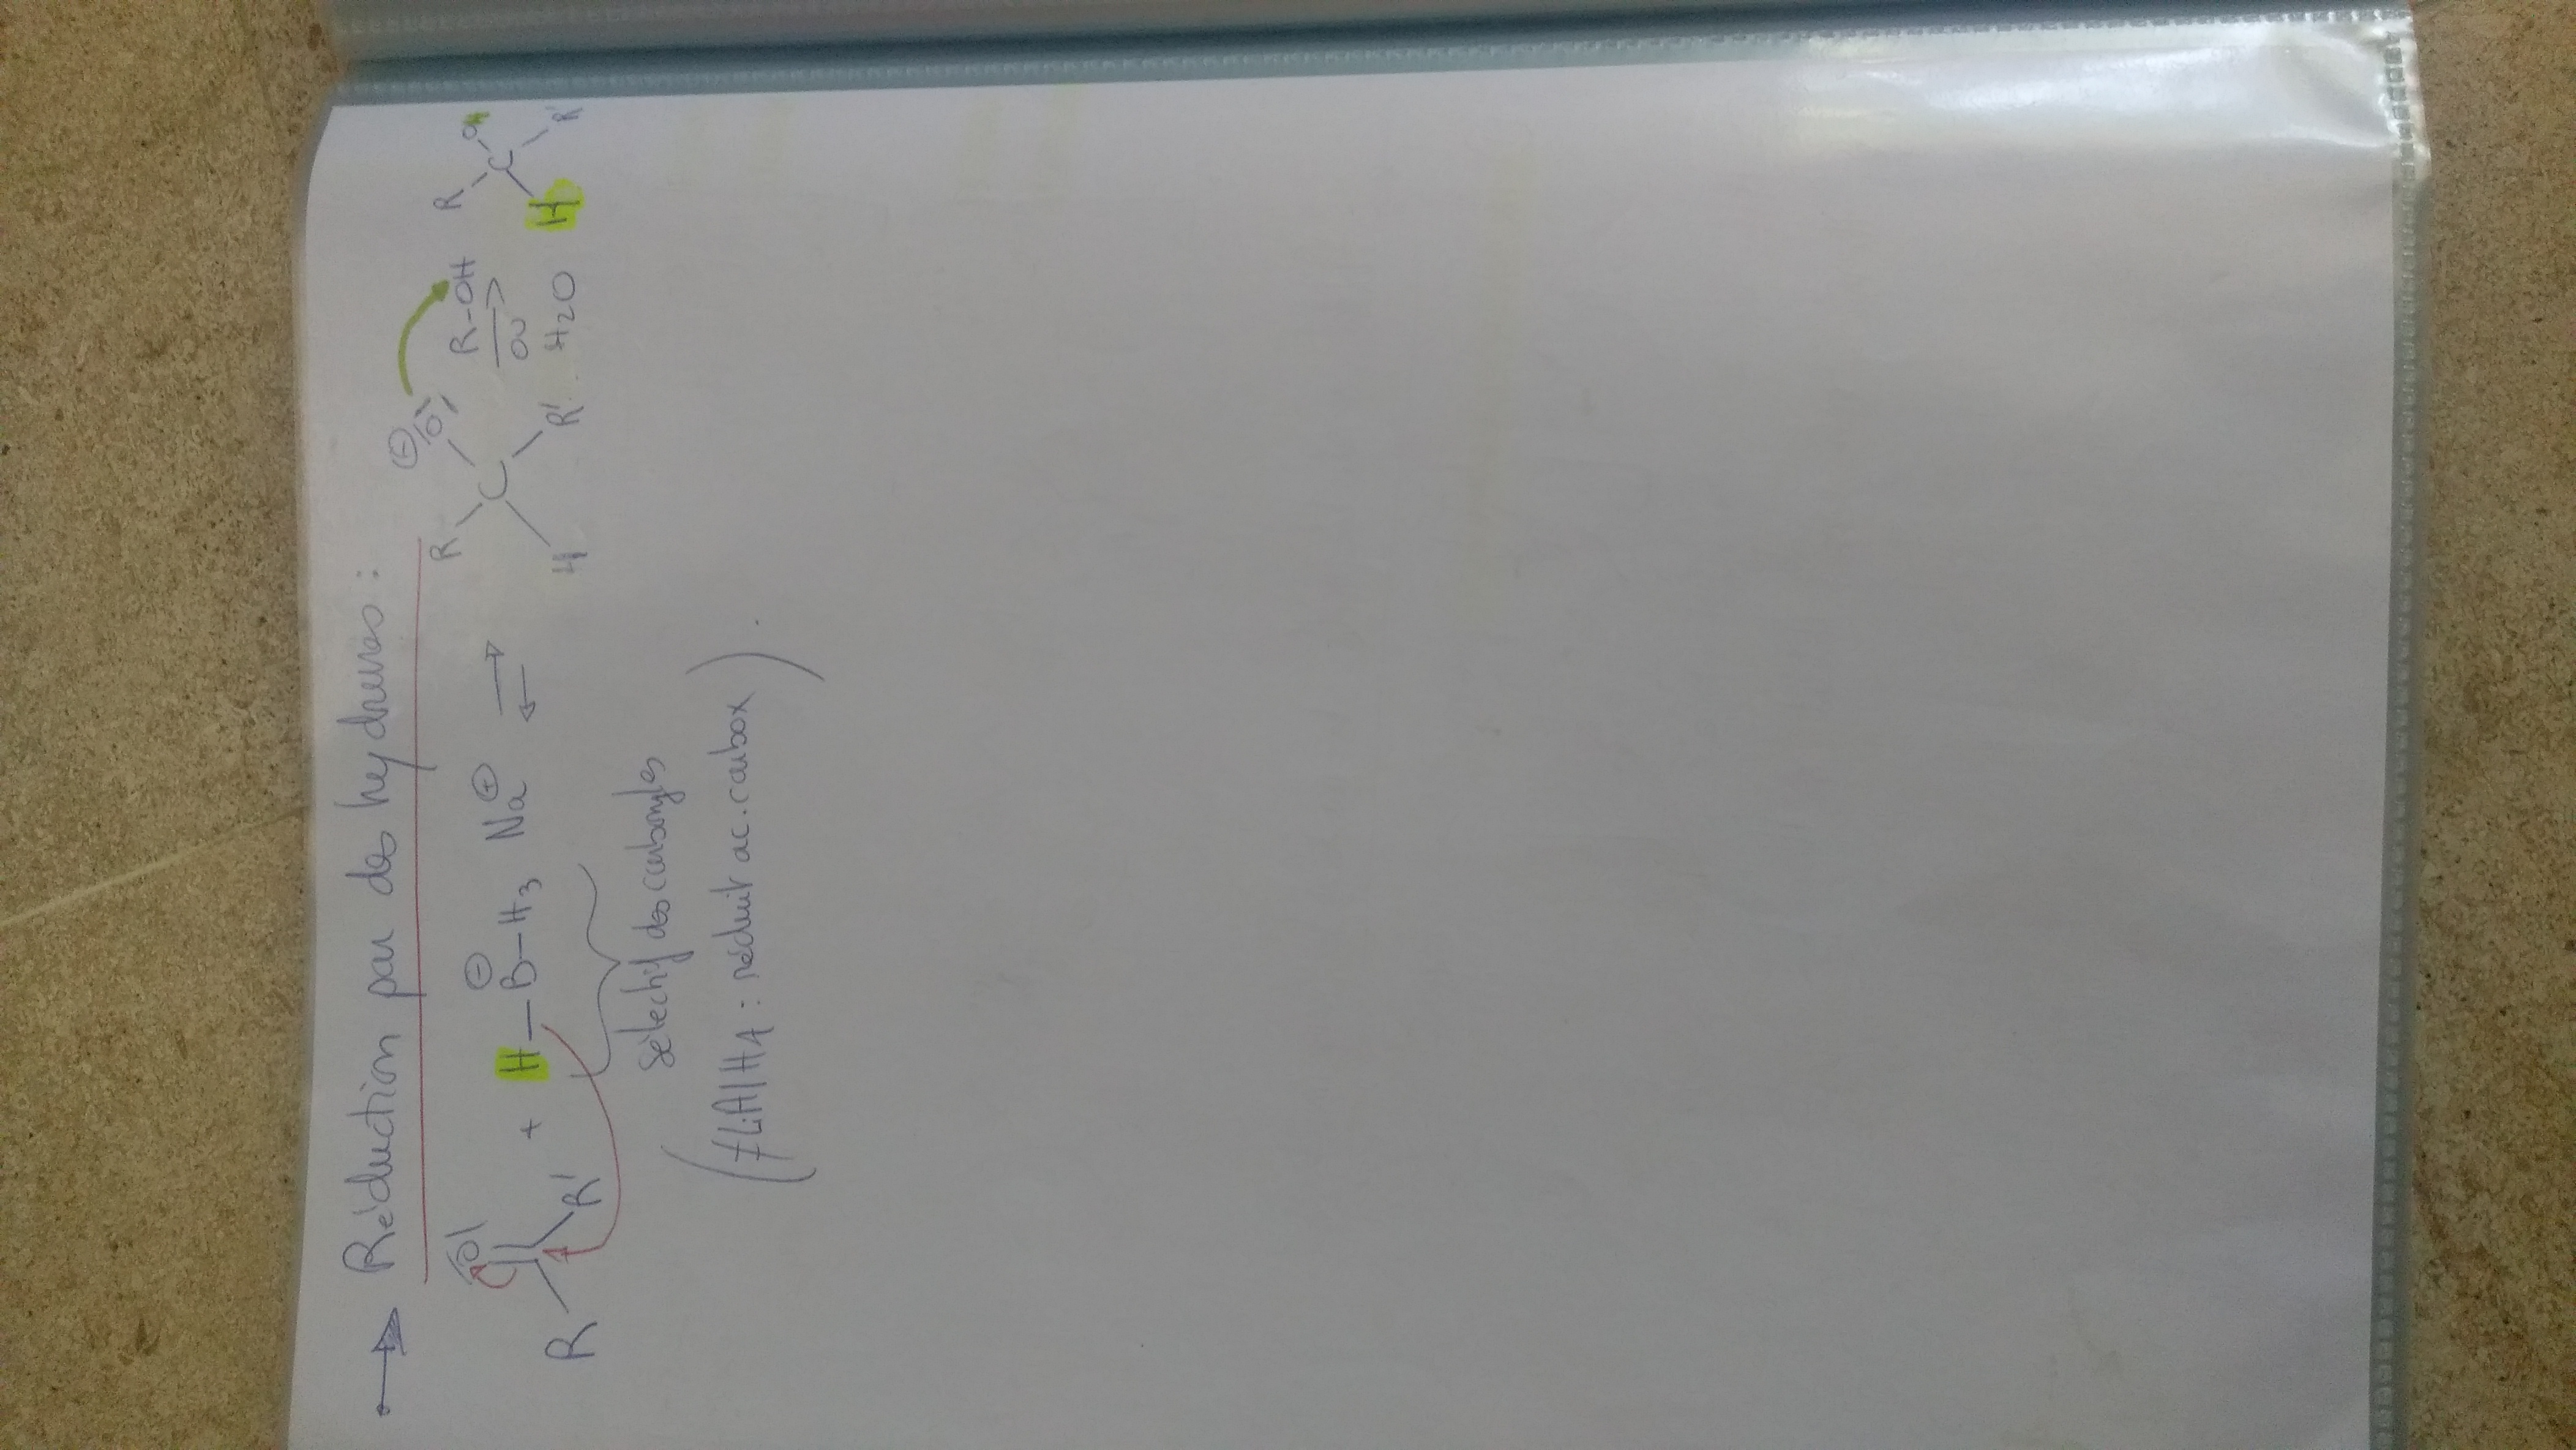 → Réduction par des hydrures :
R R' |O| + H—B⊖—H3 Na⊕ ⇌ R C |O|⊖ H R' R-OH ou H2O → R C OH H R'
sélectif des carbonyles
(≠ LiAlH4 : réduit ac. carbox).